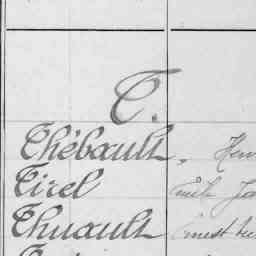 T.
Thébault, Hen
Tirel Emile Jo
Thuault Ernest